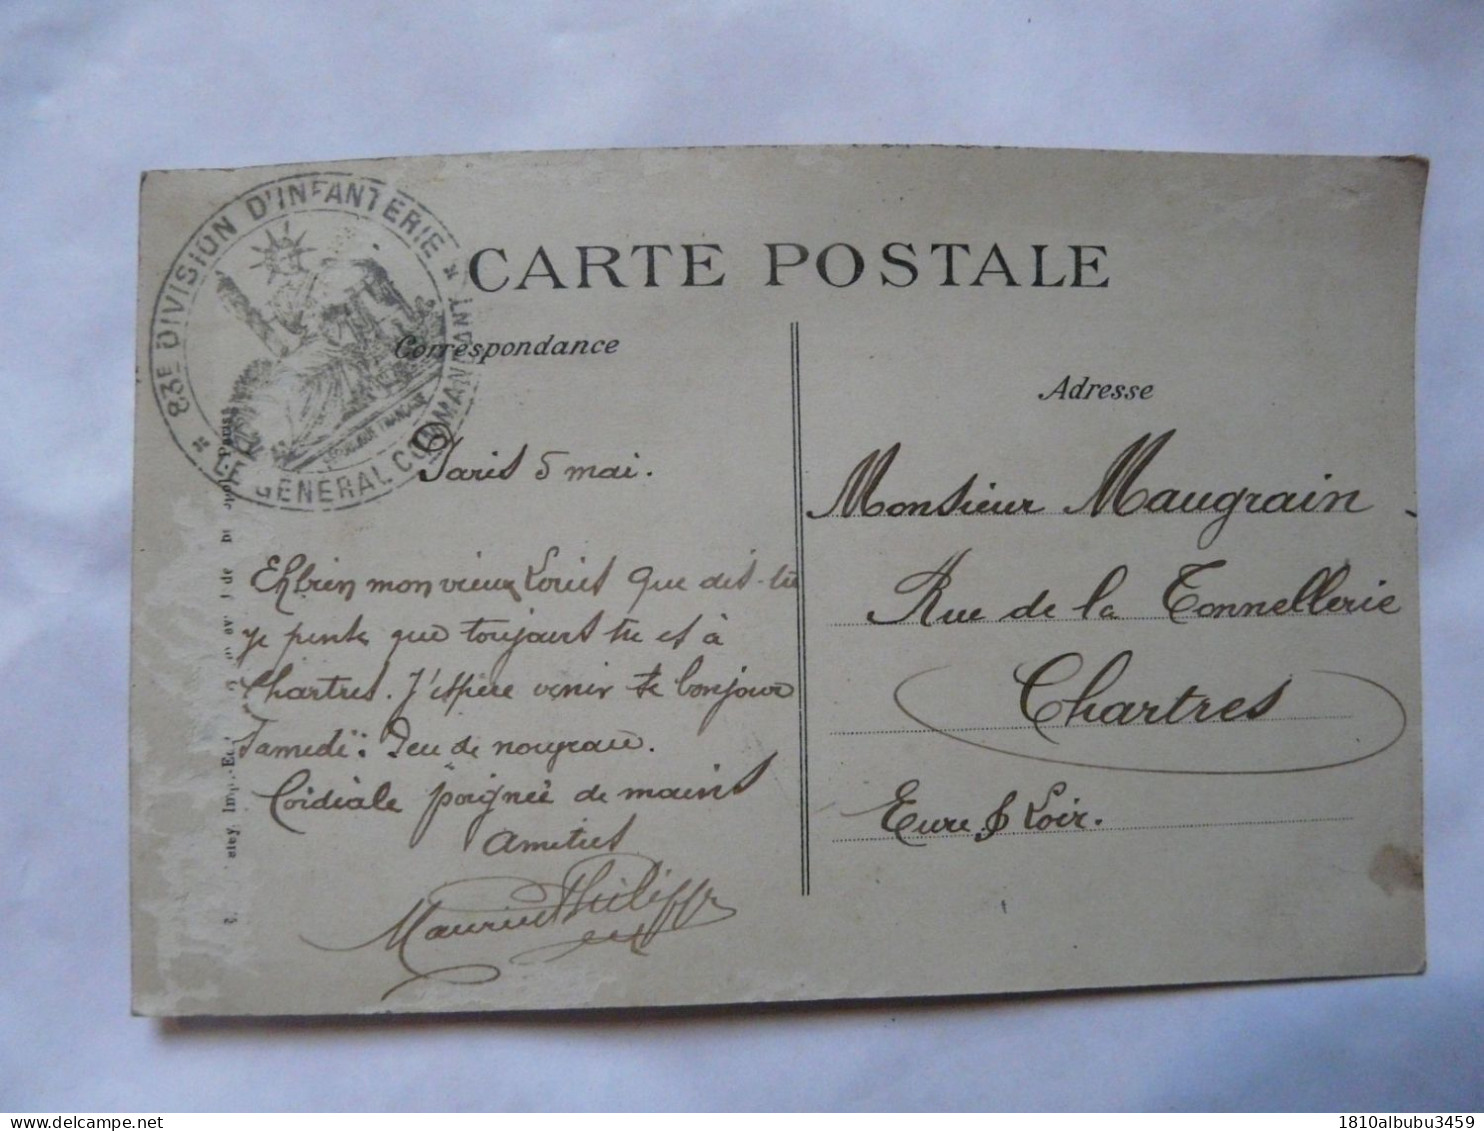 83E DIVISION D'INFANTERIE
LE GÉNÉRAL COMMANDANT
RÉPUBLIQUE FRANÇAISE
CARTE POSTALE
Correspondance
Adresse
Paris 5 mai.
Eh bien mon vieux Louis que dis-tu
je pense que toujours tu es à
Chartres. J'espère venir te bonjour
Samedi: Peu de nouveau.
Cordiale poignée de mains
Amitiés
Maurice Philippe
Monsieur Maugrain
Rue de la Tonnellerie
Chartres
Eure & Loir.
delcampe.net
1810albubu3459